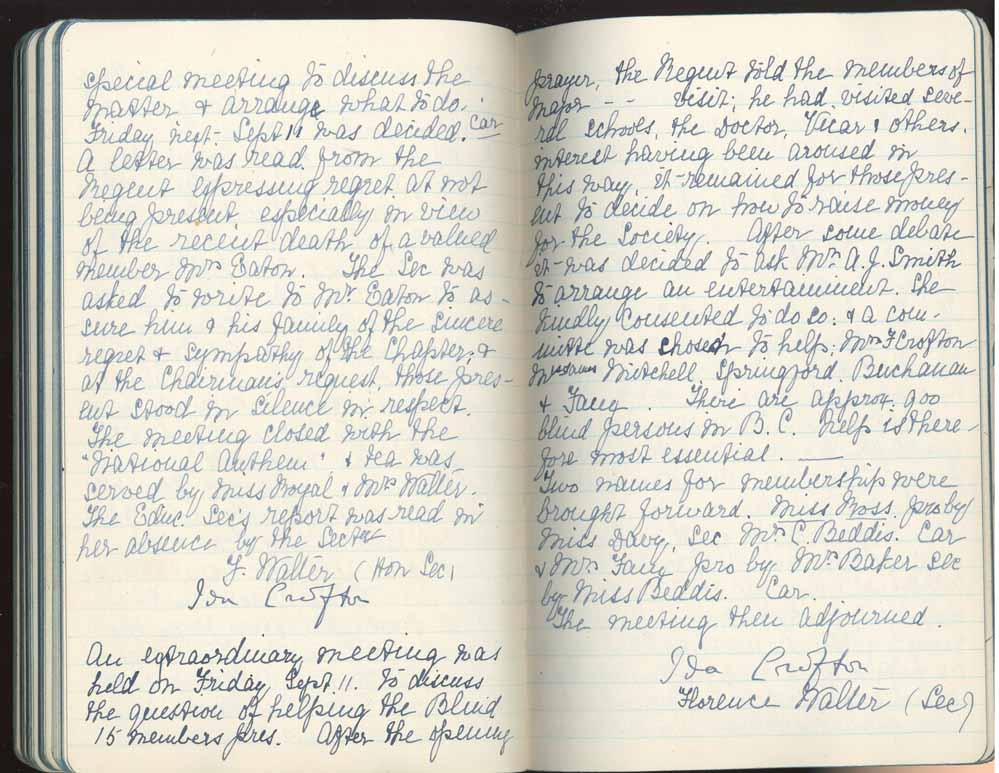 special meeting to discuss the
matter & arrange what to do.
Friday next. Sept 11 was decided. Car
A letter was read from the
Regent expressing regret at not
being present especially in view
of the recent death of a valued
member Mrs Eaton. The Sec was
asked to write to Mr Eaton to as-
sure him & his family of the sincere
regret & sympathy of the Chapter, &
at the Chairman's request, those pres-
ent stood in silence in respect.
The meeting closed with the
"National Anthem" & tea was
served by Miss Royal & Mrs Walter.
The Educ. Sec's report was read in
her absence by the Sectry
F. Walter (Hon Sec)
Ida Crofton
An extraordinary meeting was
held on Friday Sept. 11. to discuss
the question of helping the Blind
15 members pres. After the opening
prayer, the Regent told the members of
Major -- visit; he had visited seve-
ral schools, the Doctor, Vicar & others.
interest having been aroused in
this way, it remained for those pres-
ent to decide on how to raise money
for the Society. After some debate
it was decided to ask Mrs A.J. Smith
to arrange an entertainment. She
kindly consented to do so: & a com-
mitte was chosen to help; Mrs F Crofton
Mesdames Mitchell, Springford, Buchanan
& . There are approx. 900
blind persons in B.C. help is there-
fore most essential. —
Two names for membership were
brought forward. Miss Moss. pro by
Miss Davy, Sec Mrs C. Beddis. Car
& Mrs pro by Mrs Baker sec
by Miss Beddis. Car.
The meeting then adjourned.
Ida Crofton
Florence Walter (Sec)